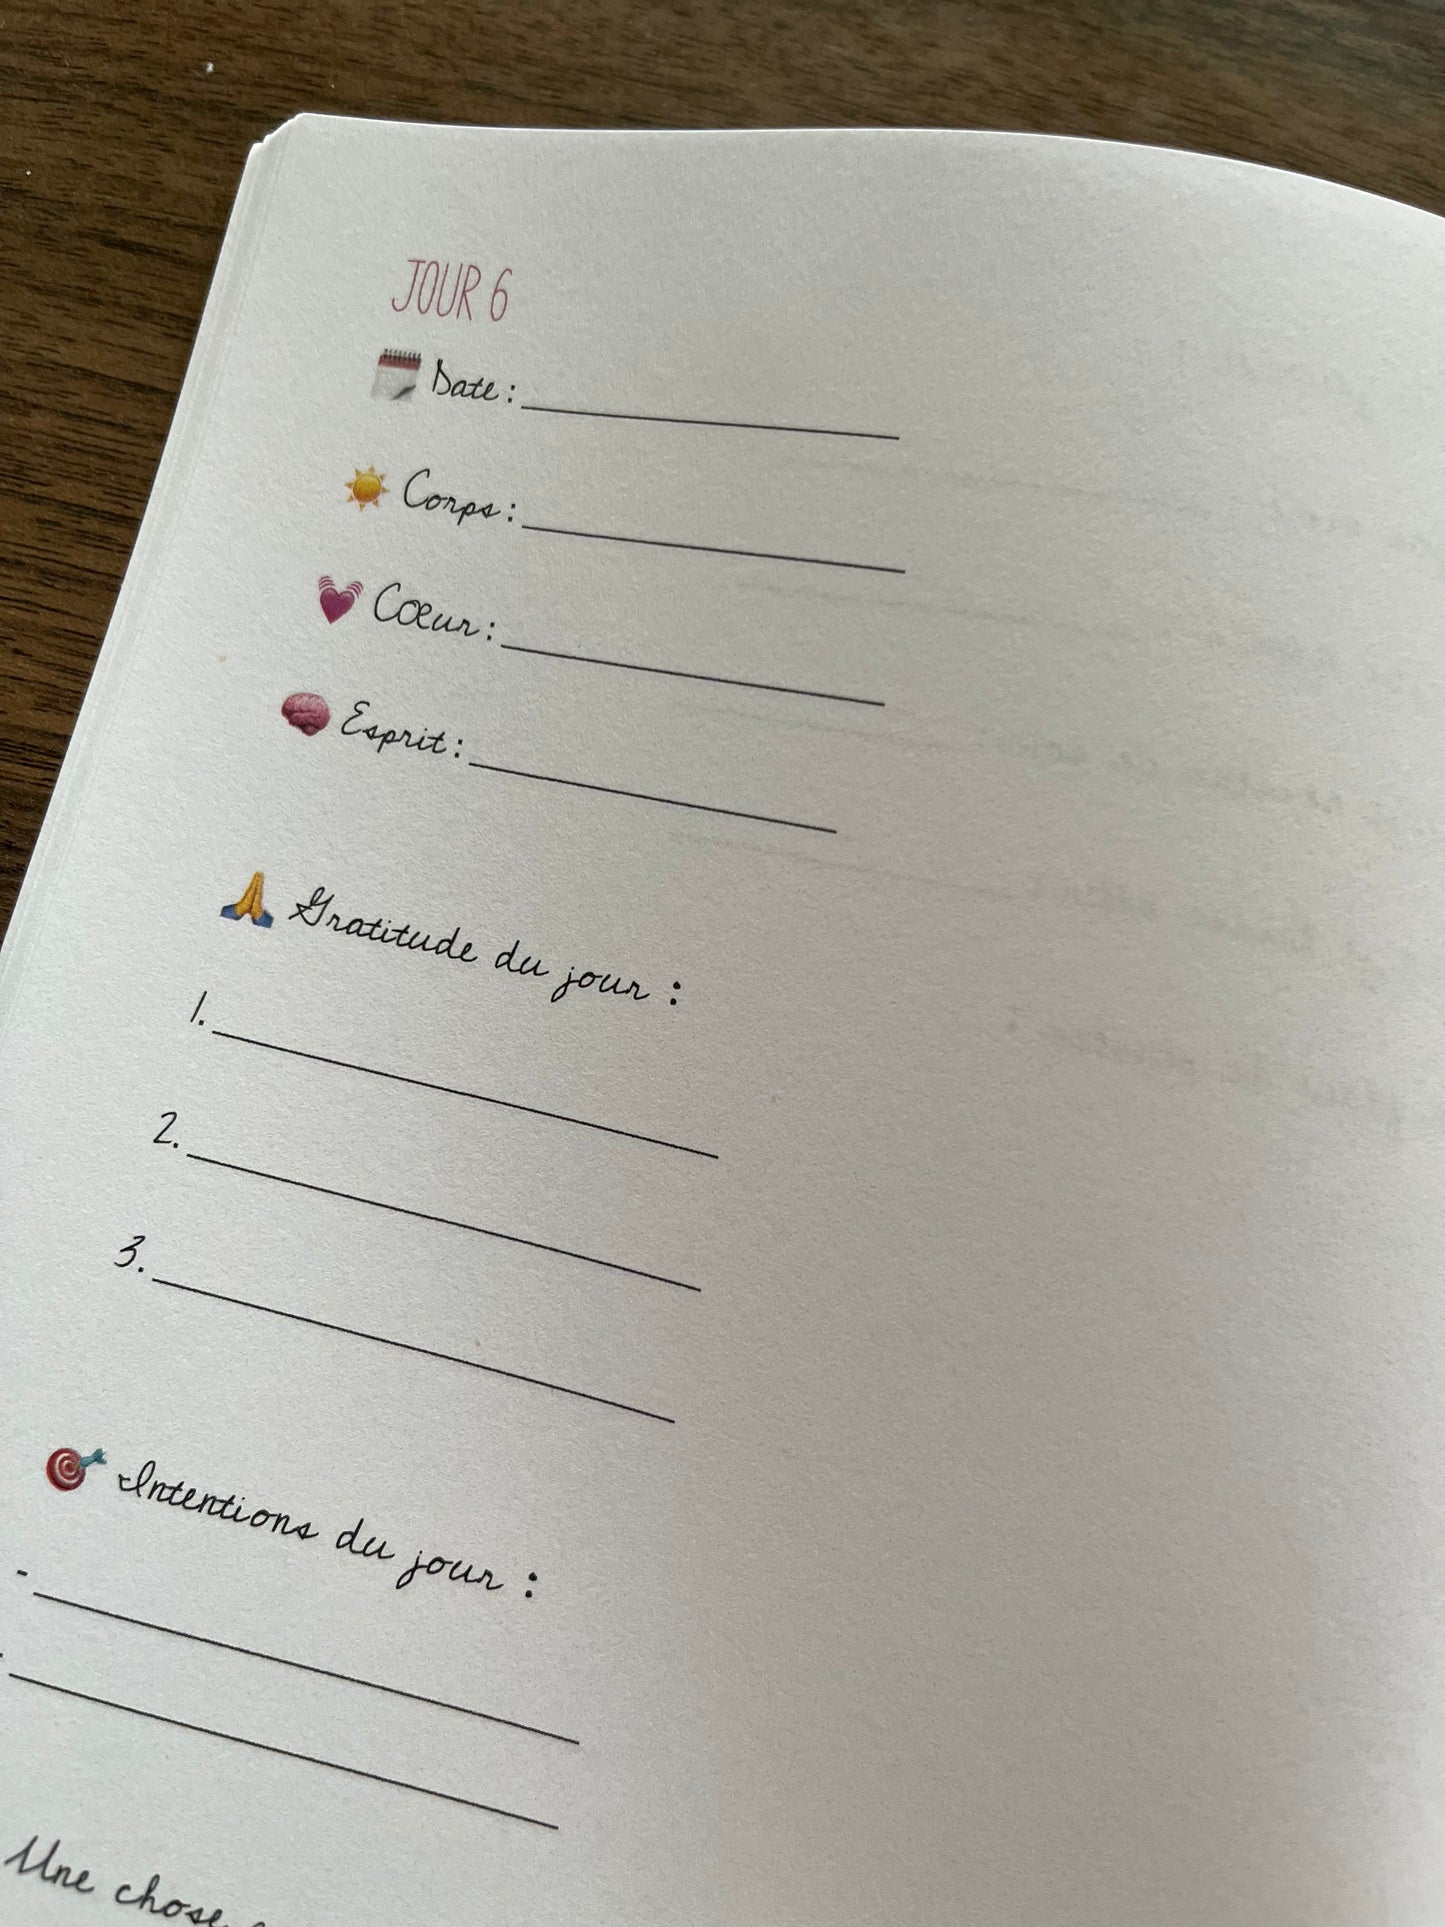 JOUR 6
Date :
Corps :
Cœur :
Esprit :
Gratitude du jour :
1.
2.
3.
Intentions du jour :
-
-
Une chose